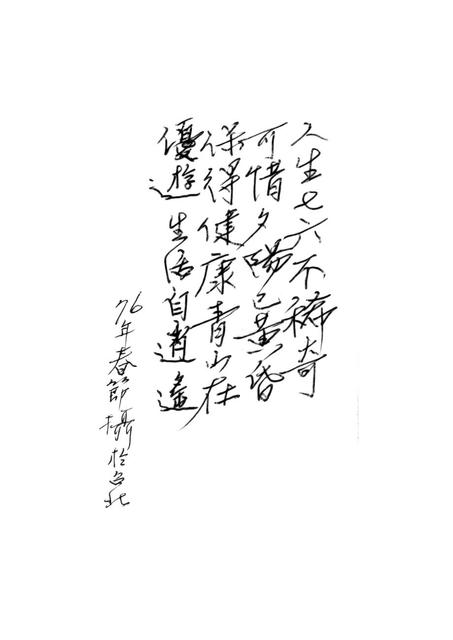 人生七六不稀奇
可惜夕陽已黃昏
保得健康青山在
優遊生活自逍遙
76年春節攝於台北